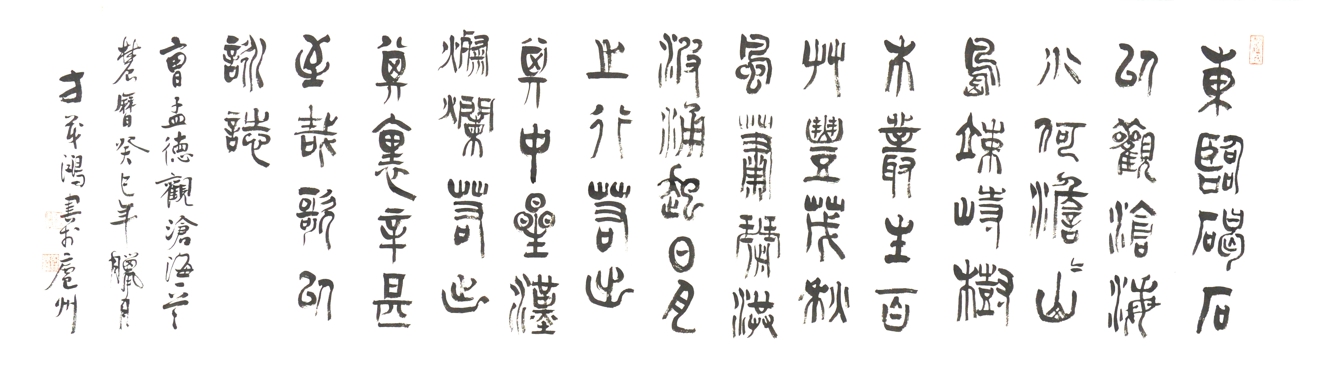 東臨碣石
以觀滄海
水何澹〻山
島竦峙樹
木叢生百
艸豐茂秋
風蕭瑟洪
波涌起日月
之行若出
其中星漢
燦爛若出
其裏幸甚
至哉歌以
詠誌
曹孟德觀滄海
農曆癸巳年臘月
鴻書於廬州